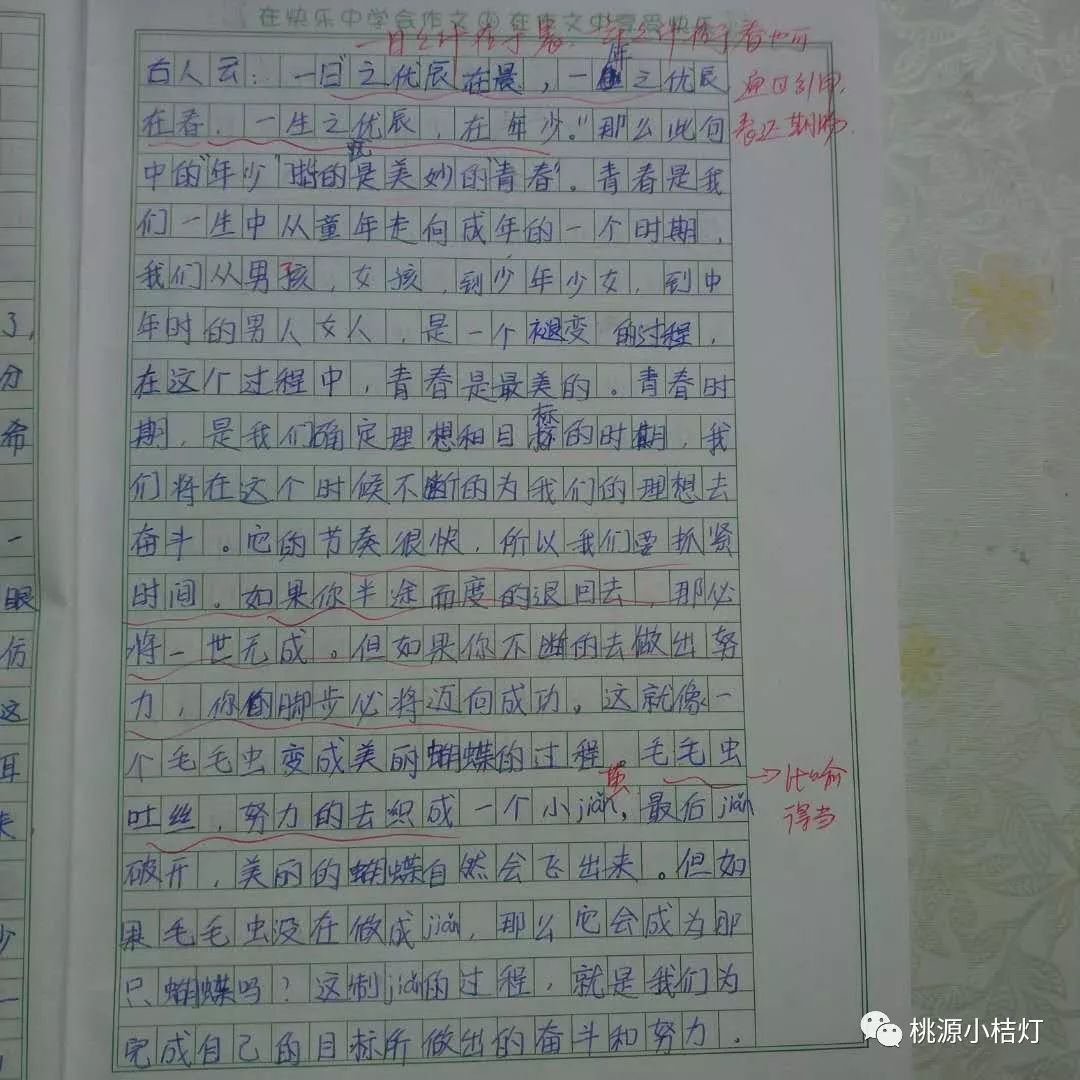 在快乐中学会作文 在作文中享受快乐
古人云：一日之优辰在晨，一年之优辰
在春，一生之优辰，在年少。”那么此句
中的“年少”指的是美妙的“青春”。青春是我
们一生中从童年走向成年的一个时期，
我们从男孩，女孩，到少年少女，到中
年时的男人女人，是一个褪变的过程，
在这个过程中，青春是最美的。青春时
期，是我们确定理想和目标的时期，我
们将在这个时候不断的为我们的理想去
奋斗。它的节奏很快，所以我们要抓紧
时间。如果你半途而度的退回去，那必
将一世无成。但如果你不断的去做出努
力，你的脚步必将迈向成功。这就像一
个毛毛虫变成美丽蝴蝶的过程。毛毛虫
吐丝，努力的去织成一个小jiǎn，最后jiǎn
破开，美丽的蝴蝶自然会飞出来。但如
果毛毛虫没在做成jiǎn，那么它会成为那
只蝴蝶吗？这制jiǎn的过程，就是我们为
完成自己的目标所做出的奋斗和努力。
比喻
得当
了，
分
希
一
眼
仿
这
耳
桃源小桔灯